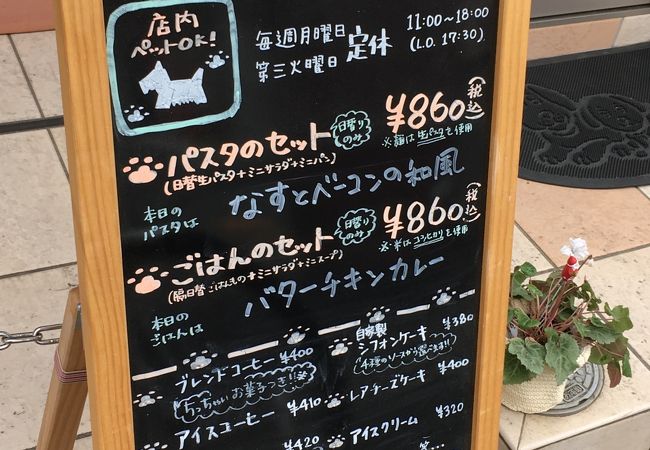 店内
ペットOK!
毎週月曜日
第三火曜日
定休
11:00~18:00
(L.O. 17:30)
パスタのセット
日替りのみ
¥860(税込)
(日替生パスタ+ミニサラダ+ミニパン)
※麺は生パスタを使用
本日の
パスタは
なすとベーコンの和風
ごはんのセット
日替りのみ
¥860(税込)
(隔日替ごはんもの+ミニサラダ+ミニスープ)
※米はコシヒカリを使用
本日の
ごはんは
バターチキンカレー
ブレンドコーヒー ¥400
ちっちゃいお菓子つき!!
アイスコーヒー ¥410
¥420
自家製
シフォンケーキ ¥380
4種のソースから選べます!!
レアチーズケーキ ¥400
アイスクリーム ¥320